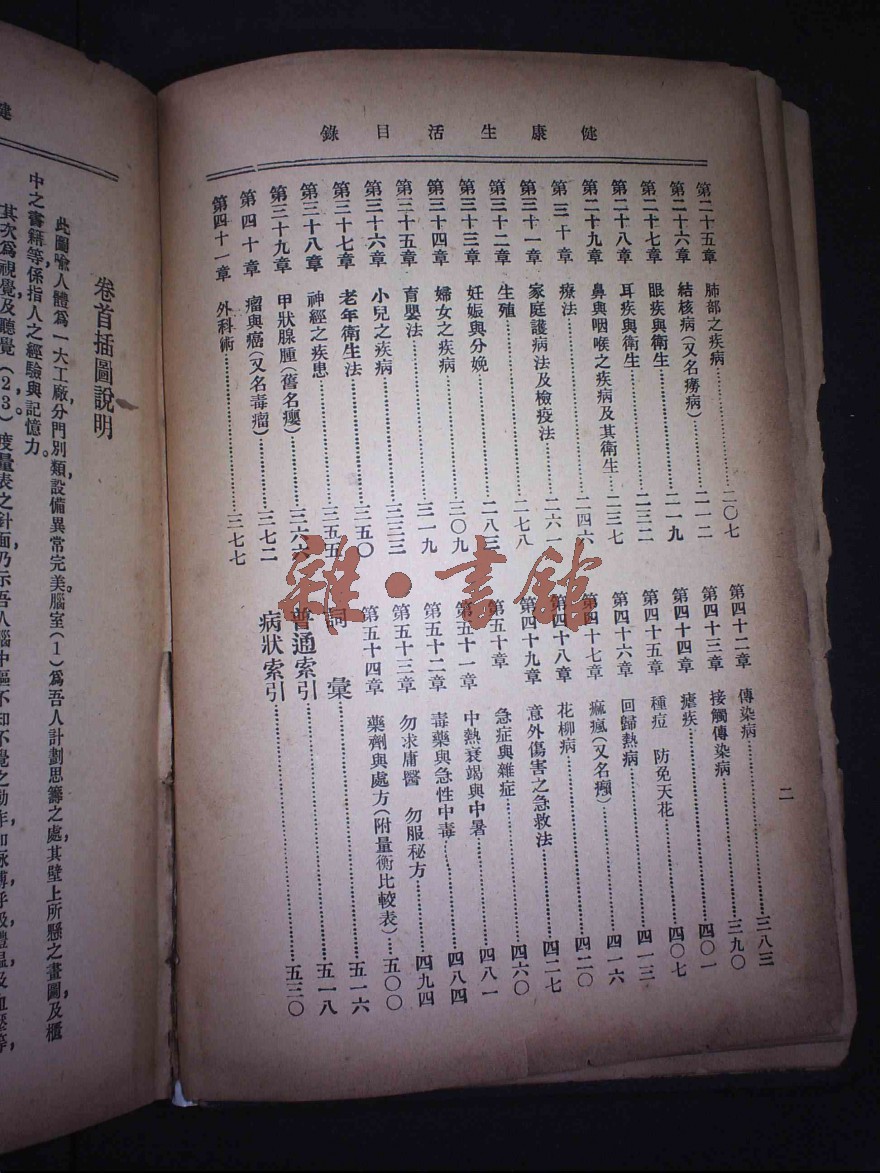 健康生活目錄
第二十五章 肺部之疾病 二〇七
第二十六章 結核病(又名癆病) 二一二
第二十七章 眼疾與衛生 二一九
第二十八章 耳疾與衛生 二三二
第二十九章 鼻與咽喉之疾病及其衛生 二三七
第三十章 療法 二四六
第三十一章 家庭護病法及檢疫法 二六一
第三十二章 生殖 二七八
第三十三章 妊娠與分娩 二八三
第三十四章 婦女之疾病 三〇九
第三十五章 育嬰法 三一九
第三十六章 小兒之疾病 三三三
第三十七章 老年衛生法 三五〇
第三十八章 神經之疾患 三五五
第三十九章 甲狀腺腫(舊名癭) 三六六
第四十章 瘤與癌(又名毒瘤) 三七二
第四十一章 外科術 三七七
第四十二章 傳染病 三八三
第四十三章 接觸傳染病 三九〇
第四十四章 瘧疾 四〇一
第四十五章 種痘 防免天花 四〇七
第四十六章 回歸熱病 四一三
第四十七章 痲瘋(又名癩) 四一六
第四十八章 花柳病 四二〇
第四十九章 意外傷害之急救法 四二七
第五十章 急症與雜症 四六〇
第五十一章 中熱衰竭與中暑 四八一
第五十二章 毒藥與急性中毒 四八四
第五十三章 勿求庸醫 勿服秘方 四九四
第五十四章 藥劑與處方(附量衡比較表) 五〇〇
詞彙 五一六
普通索引 五一八
病狀索引 五三〇
二
雜·書館
健
卷首插圖說明
此圖喻人體爲一大工廠,分門別類,設備異常完美。腦室(1)爲吾人計劃思籌之處,其壁上所懸之畫圖及櫃
中之書籍等,係指人之經驗與記憶力。
其次爲視覺及聽覺(23)。度量表之針面,乃示吾人腦中樞不知不覺之動作,如脉搏,呼吸,體溫,及血壓等,